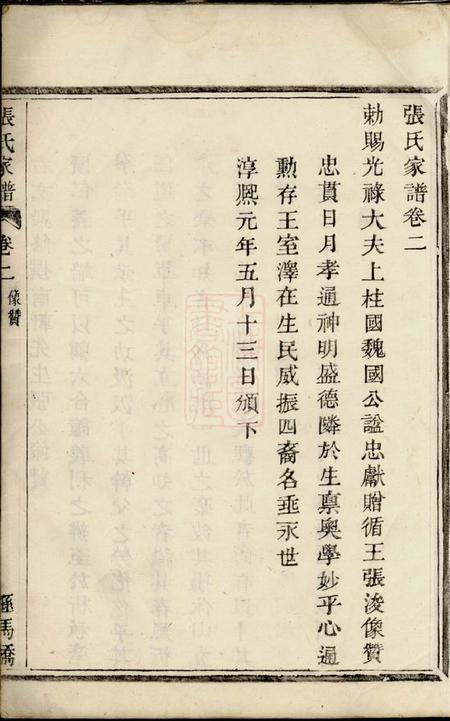 張氏家譜卷二
勅賜光祿大夫上柱國魏國公諡忠獻贈循王張浚像贊
忠貫日月孝通神明盛德隣於生稟奧學妙乎心通
勲存王室澤在生民威振四裔名垂永世
淳熙元年五月十三日頒下
張氏家譜
卷二
像贊
孫馬橋